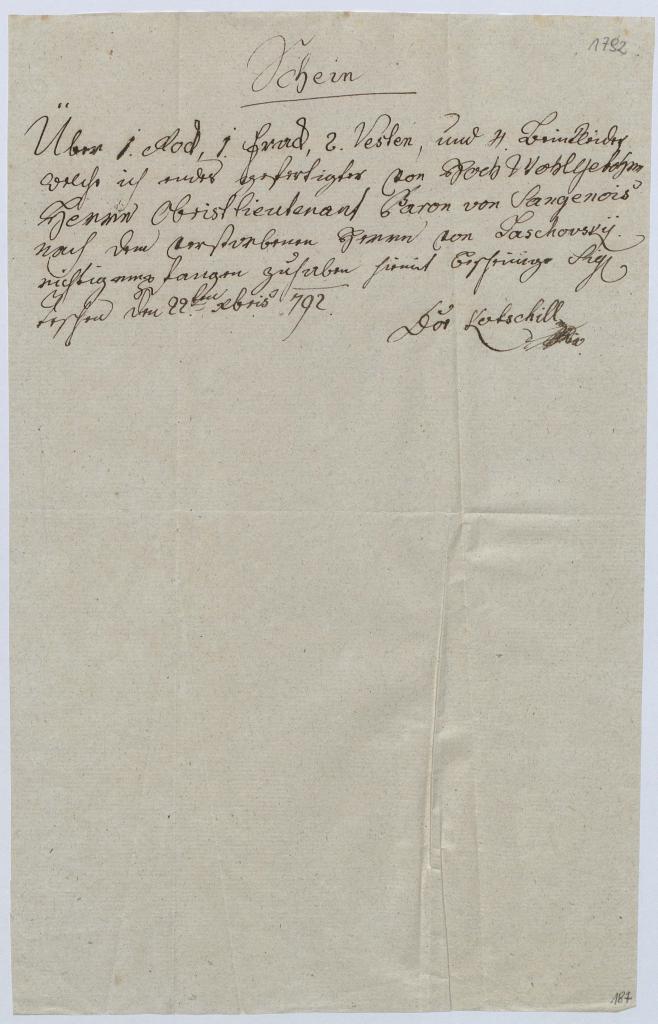 1792
Schein
Über 1. Rock, 1. Frack, 2. Vesten, und 4. Beinkleider
welche ich endes gefertigter von Hoch Wohlgebohrn
Herrn Obristlieutenant Baron von Sangenois
nach dem verstorbenen Herrn von Laschovskÿ
richtig empfangen zu haben hiemit bescheinige Sig
Teschen den 22ten Xbris 792.
Kotschill
187